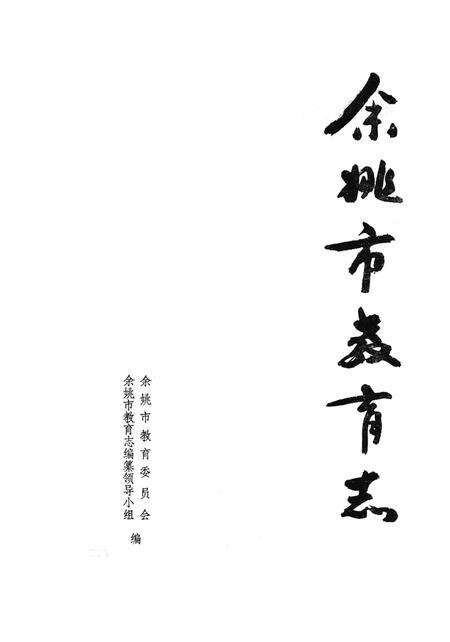 余姚市教育志
余姚市教育委员会
余姚市教育志编纂领导小组
编